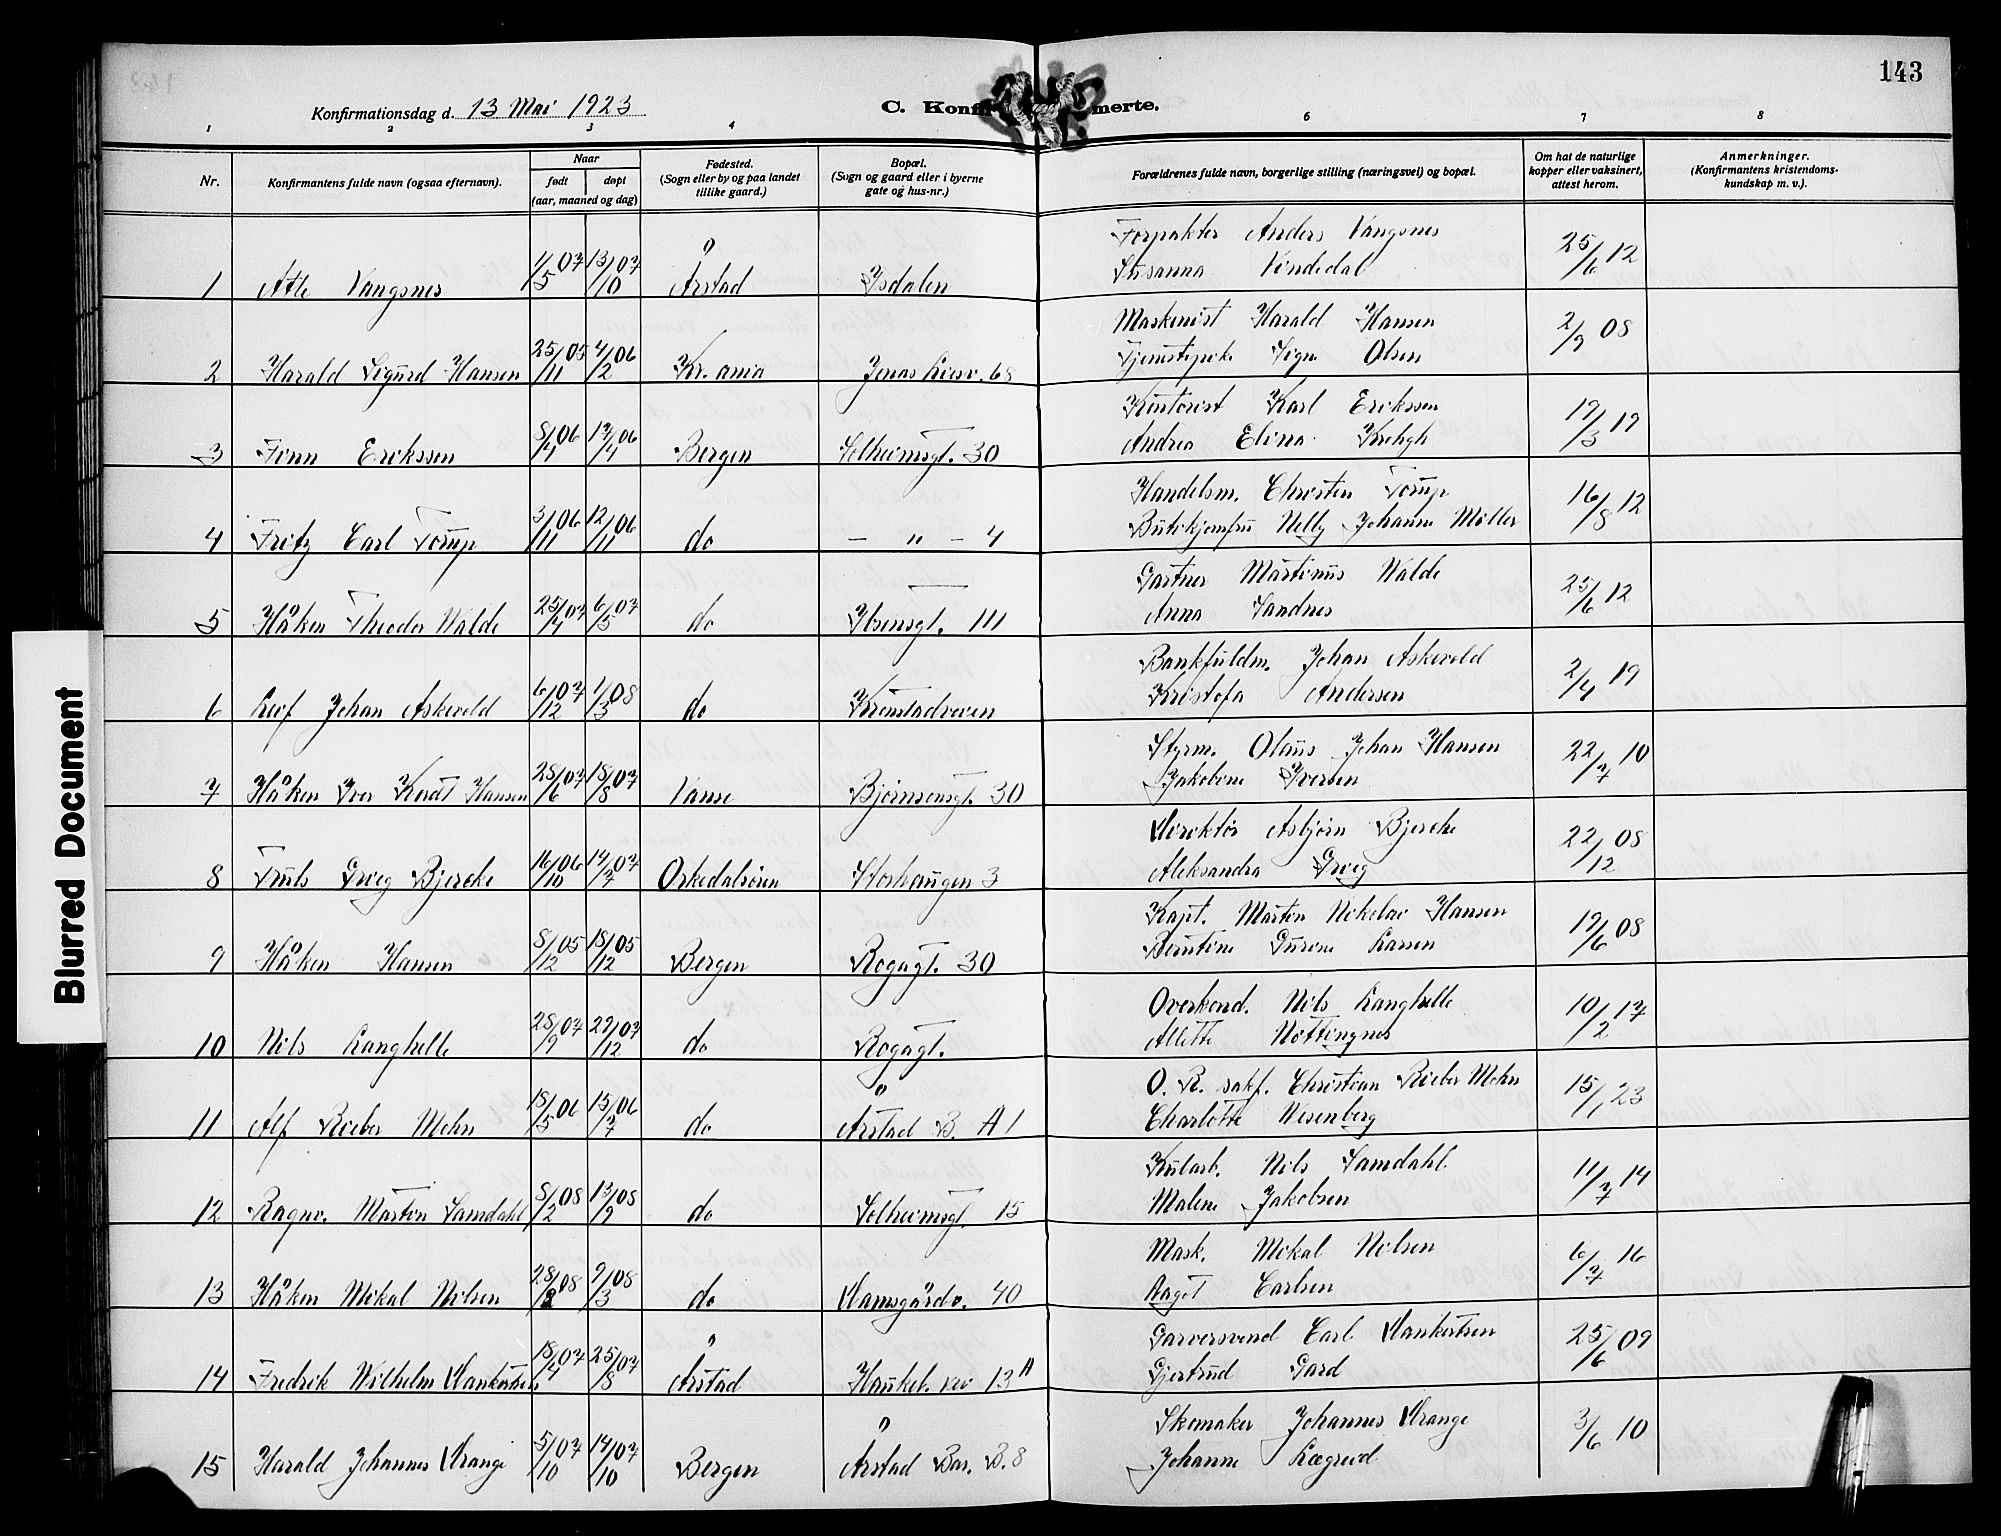 143
Konfirmationsdag d. 13 Mai 1923
C. Konfir merte.
1 2 3 4 6 7 8
Nr.
Konfirmantens fulde navn (ogsaa efternavn).
Naar
født døpt
(aar, maaned og dag)
Fødested.
(Sogn eller by og paa landet
tillike gaard.)
Bopæl.
(Sogn og gaard eller i byerne
gate og hus-nr.)
Forældrenes fulde navn, borgerlige stilling (næringsvei) og bopæl.
Om hat de naturlige
kopper eller vaksinert,
attest herom.
Anmerkninger.
(Konfirmantens kristendoms-
kundskap m. v.).
Forpakter Anders Vangsnes
1 Atle Vangsnes 1/5 07 13/10 07 Årstad Isdalen Susanna Vindedal 25/6 12
Maskinist Harald Hansen
2 Harald Sigurd Hansen 25/11 05 4/2 06 Kr.ania Jonas Liesv. 68 Tjenestepike Signe Olsen 2/9 08
Kontorist Karl Erikssen
3 Finn Erikssen 8/4 06 17/4 06 Bergen Solheimsgt. 30 Andrea Elina 19/3 19
Handelsm. Christen Torup
4 Fritz Carl Torup 3/11 06 12/11 06 do — " — 4 Butikjomfru Nelly Johanne Möller 16/8 12
Gartner Martinus Walde
5 Håkon Theodor Walde 25/4 07 6/5 07 do Ibsensgt. 111 Anna Sandnes 25/6 12
Bankfuldm. Johan Askevold
6 Leif Johan Askevold 6/12 07 1/3 08 do Kronstadveien Kristofa Andersen 2/4 19
Styrm. Olaus Johan Hansen
7 Håkon Iver Knut Hansen 28/6 07 18/8 07 Vanse Bjørnsonsgt. 30 Jakobine Iversen 22/7 10
Direktør Asbjörn Bjercke
8 Truls Grieg Bjercke 16/10 06 14/7 07 Orkedalsören Storhaugen 3 Aleksandra Grieg 22/12 08
Kapt. Martin Nikolai Hansen
9 Håkon Hansen 8/12 05 18/12 05 Bergen Rogagt. 30 Berntine Gurine Larsen 19/6 08
Overkond. Nils Langhelle
10 Nils Langhelle 28/9 07 29/12 07 do Rogagt. Alette 10/2 17
O. R. sakf. Christian Rieber Mohn
11 Alf Rieber Mohn 18/5 06 15/7 06 do Årstad B. A 1 Charlotte Wesenberg 15/1 23
Kularb. Nils Samdahl
12 Ragnv. Martin Samdahl 8/2 08 13/9 08 do Solheimsgt. 15 Malene Jakobsen 11/7 14
Mask. Mikal Nilsen
13 Håkon Mikal Nilsen 28/2 08 9/3 08 do Damsgårdv. 40 Aagot Carlsen 6/7 16
Garversvend Carl Dankertsen
14 Fredrik Wilhelm Dankertsen 18/4 07 25/8 07 Årstad Haukel. vei 13 A Gjertrud Gard 25/6 09
Skomaker Johannes Drange
15 Harald Johannes Drange 5/10 07 14/10 07 Bergen Årstad Bar. B. 8 Johanne Lægreid 3/6 10
Blurred Document